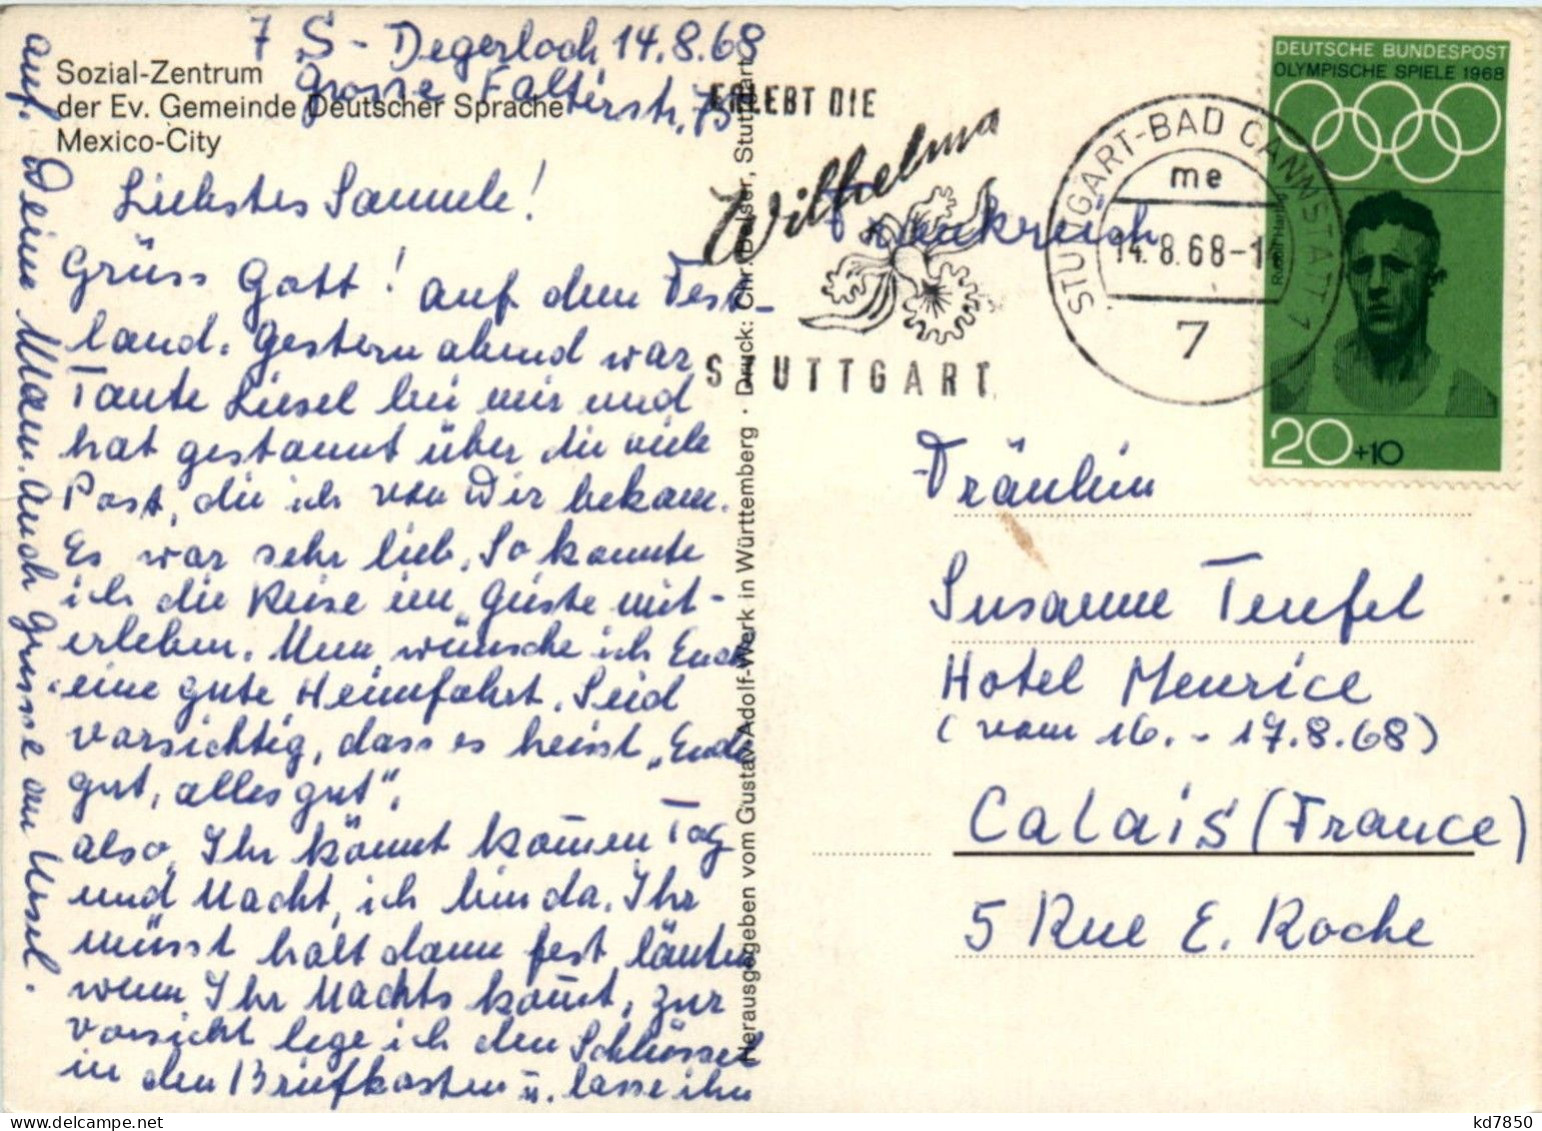 7 S - Degerloch 14.8.68
Grosse Falterstr. 75
Sozial-Zentrum
der Ev. Gemeinde Deutscher Sprache
Mexico-City
Liebstes Sannele!
Grüss Gott! Auf dem Fest-
land. Gestern abend war
Tante Liesel bei mir und
hat gestaunt über die viele
Post, die ich von Dir bekam.
Es war sehr lieb. So konnte
ich die Reise im Geiste mit-
erleben. Nun wünsche ich Euch
eine gute Heimfahrt. Seid
vorsichtig, dass es heisst „Ende
gut, alles gut".
Also, Ihr könnt kom̄en Tag
und Nacht, ich bin da. Ihr
müsst halt dann fest läuten
wenn Ihr Nachts kom̄t, zur
Vorsicht lege ich den Schlüssel
in den Briefkasten u. lasse ihn
auf. Deine Mam. Auch Grüsse an Ursel.
Herausgegeben vom Gustav-Adolf-Werk in Württemberg · Druck: Chr. Belser, Stuttgart
ERLEBT DIE
Wilhelma
STUTTGART
STUTTGART-BAD CANNSTATT 1
me
14.8.68-14
7
DEUTSCHE BUNDESPOST
OLYMPISCHE SPIELE 1968
Rudolf Harbig
20+10
Frankreich
Fräulein
Susanne Teufel
Hotel Meurice
(vom 16. - 17.8.68)
Calais (France)
5 Rue E. Roche
kd7850